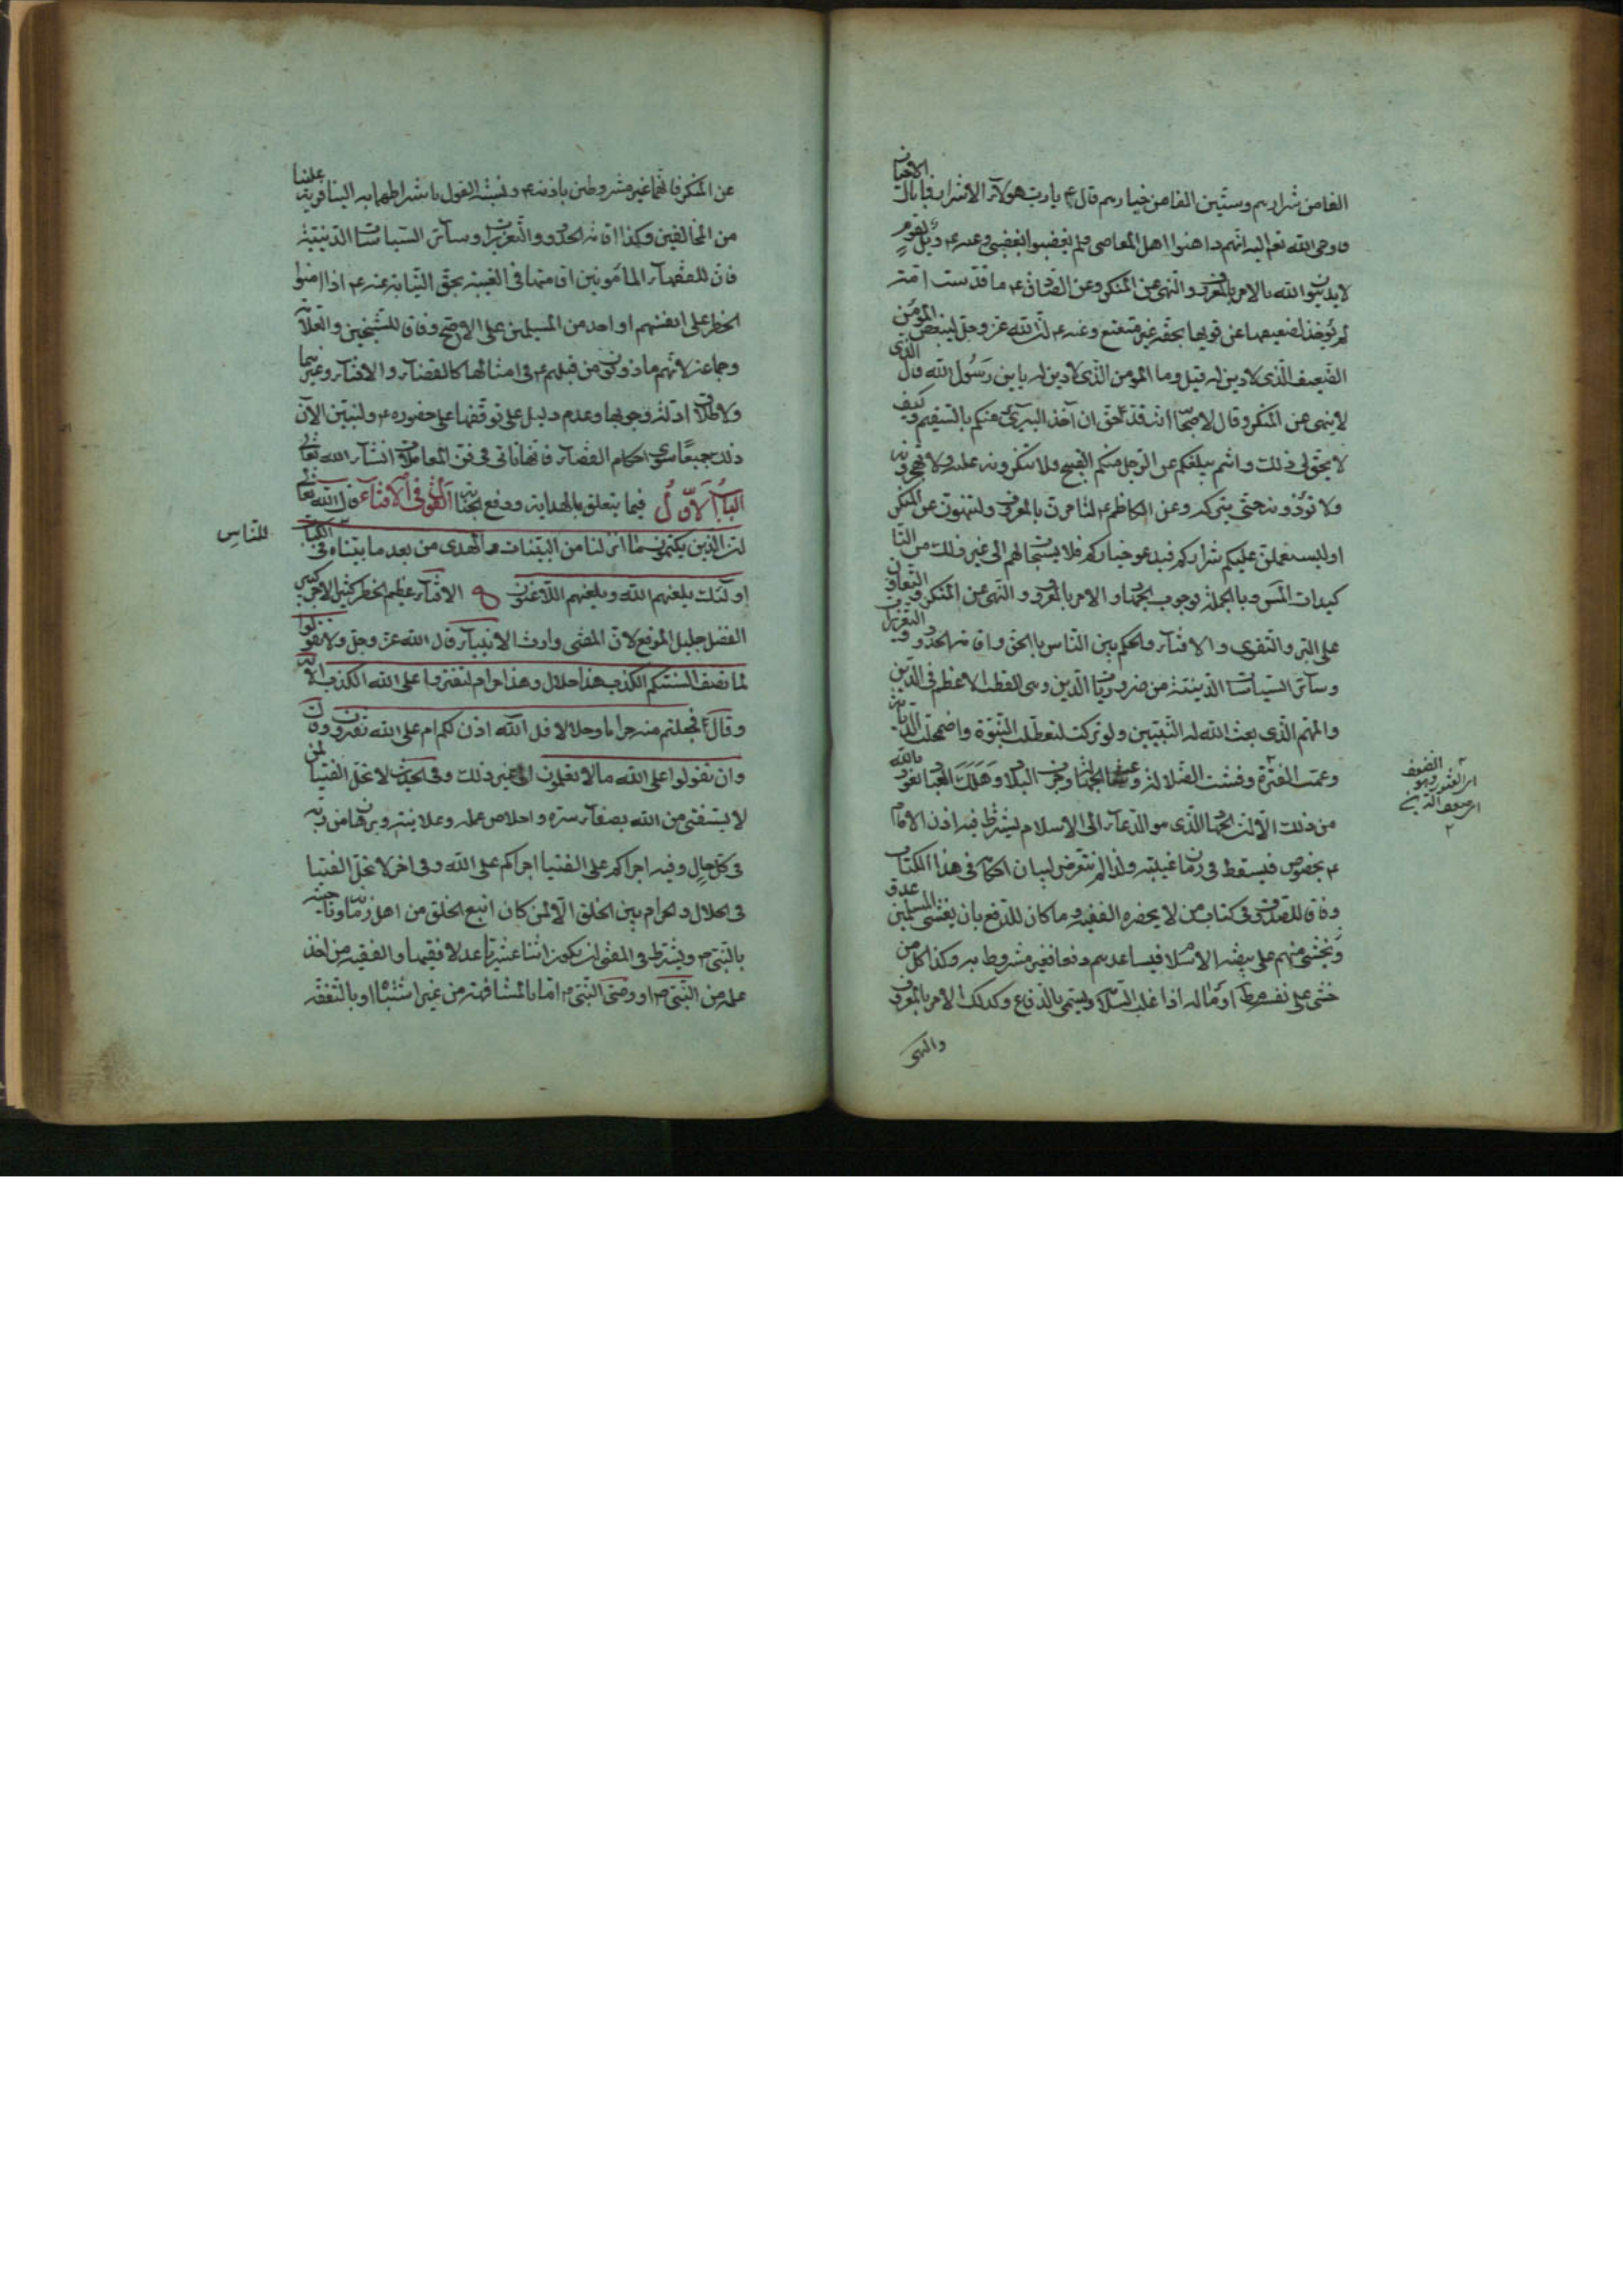 الفا من شرارهم وستين الفا من خيارهم قال ع يا رب هؤلاء الاشرار فما بال الاخيار
فاوحى الله تع اليه انهم داهنوا اهل المعاصى ولم يغضبوا لغضبى وعنه ع ويل لقوم
لا يدينون الله بالامر بالمعروف والنهى عن المنكر وعن الصادق ع ما قدست امة
لم يؤخذ لضعيفها عن قويها بحقه غير متعتع وعنه ع ان الله عز وجل ليبغض المؤمن
الضعيف الذى لا دين له قيل وما المؤمن الذى لا دين له يا بن رسول الله قال الذى
لا ينهى عن المنكر وقال لاصحابه انه قد حق لى ان آخذ البرىء منكم بالسقيم وكيف
لا يحق لى ذلك وانتم يبلغكم عن الرجل منكم القبيح ولا تنكرونه عليه ولا تهجرونه
ولا تؤذونه حتى يتركه وعن الكاظم ع لتامرن بالمعروف ولتنهون عن المنكر
او ليستعملن عليكم شراركم فيدعو خياركم فلا يستجاب لهم الى غير ذلك من التا
كيدات المس وبالجملة فوجوب الجهاد والامر بالمعروف والنهى عن المنكر والتعاون
على البر والتقوى والافتاء والحكم بين الناس بالحق واقامة الحدود والتعزيرات
وسائر السياسات الدينية من ضروريات الدين وهى القطب الاعظم فى الدين
والمهم الذى بعث الله له النبيين ولو تركت لتعطلت النبوة واضمحلت الديانة
وعمت الفترة وفشت الضلالة وشاعت الجهالة وخربت البلاد وهلك العباد نعوذ بالله
من ذلك الا ان الجهاد الذى هو الدعاء الى الاسلام يشترط فيه اذن الامام
ع بخصوصه فيسقط فى زمان غيبته ولذا لم نتعرض لبيان احكامه فى هذا الكتاب
وفاقا للصدوق فى كتاب من لا يحضره الفقيه وما كان للدفع بان يغشى المسلمين عدو
يخشى منهم على بيضة الاسلام فيساعدهم دفعا فغير مشروط به وكذا كل من
خشى على نفسه مط او ماله اذا غلب السلامة ويسمى بالدفاع وكذلك الامر بالمعروف
والنهى
الضعف
عن المنكر فانهما غير مشروطين باذنه ع ونسبة القول باشتراطهما به الينا فرية علينا
من المخالفين وكذا اقامة الحدود والتعزيرات وسائر السياسات الدينية
فان للفقهاء المامونين اقامتها فى الغيبة بحق النيابة عنه ع اذا امنوا
الخطر على انفسهم او احد من المسلمين على الاصح وفاقا للشيخين والعلامة
وجماعة لانهم ماذونون من قبلهم ع فى امثالها كالقضاء والافتاء وغيرهما
ولاطلاق ادلة وجوبها وعدم دليل على توقفها على حضوره ع ولنبين الآن
ذلك جميعا سوى احكام القضاء فانها تاتى فى فن المعاملات انشاء الله تعالى
الباب الاول فيما يتعلق بالهداية ودفع الجناية القول فى الافتاء قال الله تعالى
ان الذين يكتمون ما انزلنا من البينات والهدى من بعد ما بيناه فى الكتاب
للناس
اولئك يلعنهم الله ويلعنهم اللاعنون الافتاء عظيم الخطر كثير الاجر كبير
الفضل جليل الموقع لان المفتى وارث الانبياء قال الله عز وجل ولا تقولوا
لما تصف السنتكم الكذب هذا حلال وهذا حرام لتفتروا على الله الكذب الآية
وقال فجعلتم منه حراما وحلالا قل آلله اذن لكم ام على الله تفترون وقال
وان تقولوا على الله ما لا تعلمون الى غير ذلك وفى الحديث لا تحل الفتيا لمن
لا يستفتى من الله بصفاء سره واخلاص عمله وعلانيته وبرهان من ربه
فى كل حال وفيه اجراكم على الفتيا اجراكم على الله وفى اخر لا تحل الفتيا
فى الحلال والحرام بين الخلق الا لمن كان اتبع الخلق من اهل زمانه وناحيته
بالنبى ص ويشترط فى المفتى ان يكون اثنا عشريا عدلا فقيها والفقيه من اخذ
علمه من النبى ص او وصى النبى ص اما بالمشافهة من غير اشتباه او بالتفقه